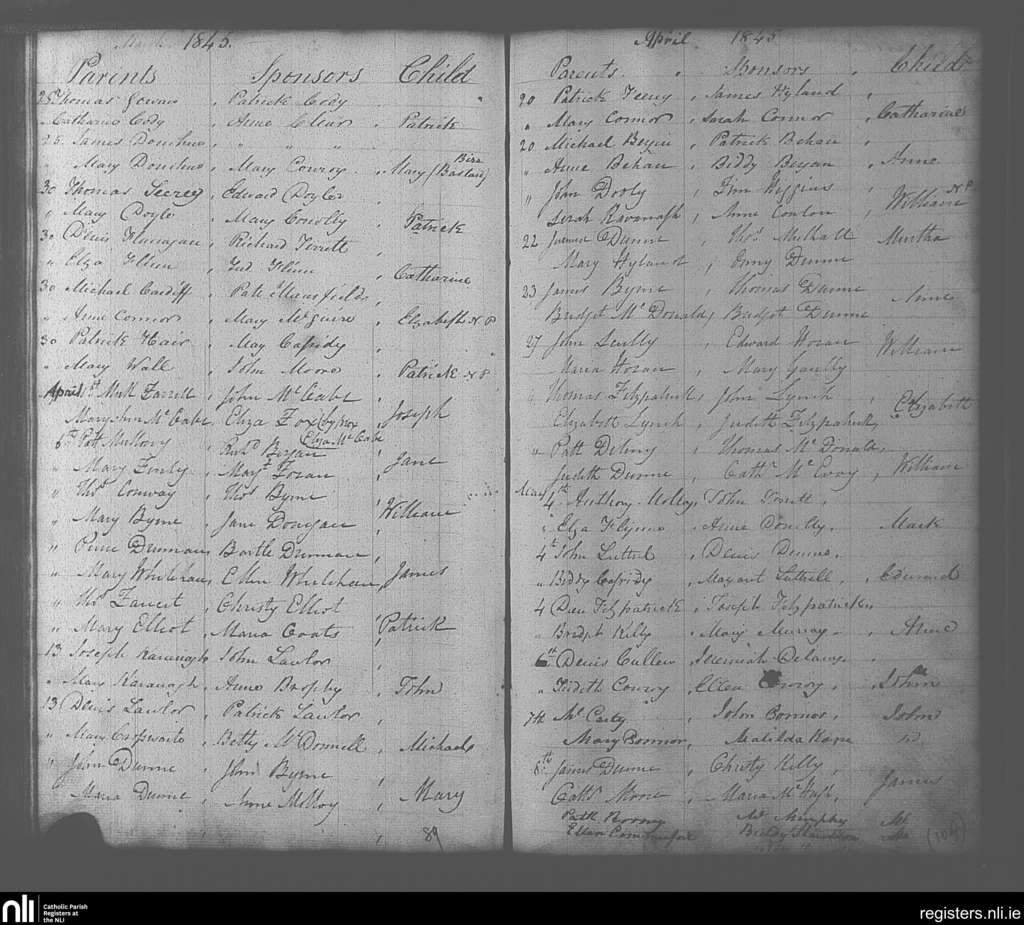 March 1845.
Parents Sponsors Child
25 Thomas Patrick Cody
Catharine Cody Anne Clear Patrick
25 James Donohue " " "
" Mary Donohue Mary Conroy Mary (Bastard)
30 Thomas Edward Doyler
" Mary Doyle Mary Conolly Patrick
30 Denis Flanagan Richard
" Eliza Flinn Flinn Catharine
30 Michael Cardiff Patt Mansfield
" Anne Connor Mary McGuire Elizabeth N.P
30 Patrick Hair May Casidy
" Mary Wall John Moore Patrick N.P
April 1st Farrell John McCabe
Mary Ann McCabe Eliza Fox by prox Joseph
Eliza McCabe
6th Patt Mullony Richd Bergan
" Mary Finly Margt Jane
" Thos Conway Thos Byrne
" Mary Byrne Jane Dongan William
" Drennan Bartle Drennan
" Mary Whelehan Ellen Whelehan James
" Thos Christy Elliot
" Mary Elliot Maria Coats Patrick
13 Joseph Kavanagh John Lawlor
" Mary Kavanagh Anne Brophy John
13 Denis Lawlor Patrick Lawlor
" Mary Betty McDonnell Michael
" John Dunne John Byrne
Maria Dunne Anne Mary
89
April 1845
Parents Sponsors Child
20 Patrick Feeny James Hyland
" Mary Connor Sarah Connor Catharine
20 Michael Bergin Patrick Behan
" Anne Behan Biddy Bergan Anne
" John Dooly Tim Higgins
" Sarah Kavanagh Anne Conlon William N.P
22 James Dunne Thos Mulhall Martha
Mary Hyland Dunne
23 James Byrne Thomas Dunne
Bridget McDonald Bridget Dunne Anne
27 John Scully Edward Horan
Maria Horan Mary William
" Thomas Fitzpatrick John Lynch
Elizabeth Lynch Judith Fitzpatrick Elizabeth
" Patt Delany Thomas McDonald
Judith Dunne Cathr McEvoy William
May 4th Anthony Molloy John
" Eliza Flynn Anne Conolly Mark
4th John Luttrel Denis Dunne
" Biddy Casidy Margart Luttrell Edward
4 Dan Fitzpatrick Joseph Fitzpatrick
" Bridget Kelly Mary Murray Anne
6th Denis Cullen Jeremiah Delany
" Judith Conroy Ellen Conroy John
7th Casty John Bonnor John
Mary Bonnor Matilda Kane
8th James Dunne Christy Kelly
Cathe Moore Maria McHugh James
Patk Rooney Mr Murphy
Ellen Biddy
(104)
nli
Catholic Parish
Registers at
the NLI
registers.nli.ie